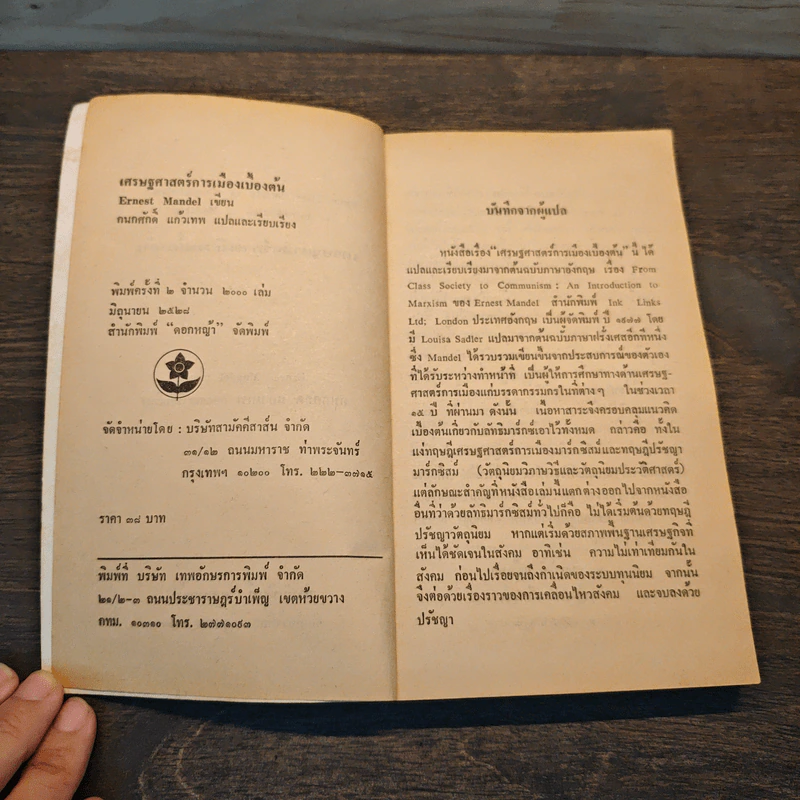 เศรษฐศาสตร์การเมืองเบื้องต้น
Ernest Mandel เขียน
กนกศักดิ์ แก้วเทพ แปลและเรียบเรียง
พิมพ์ครั้งที่ ๒ จำนวน ๒๐๐๐ เล่ม
มิถุนายน ๒๕๒๘
สำนักพิมพ์ "ดอกหญ้า" จัดพิมพ์
จัดจำหน่ายโดย : บริษัทสามัคคีสาส์น จำกัด
๓๑/๑๒ ถนนมหาราช ท่าพระจันทร์
กรุงเทพฯ ๑๐๒๐๐ โทร. ๒๒๒-๓๗๑๕
ราคา ๓๘ บาท
พิมพ์ที่ บริษัท เทพอักษรการพิมพ์ จำกัด
๒๑/๒-๓ ถนนประชาราษฎร์บำเพ็ญ เขตห้วยขวาง
กทม. ๑๐๓๑๐ โทร. ๒๗๗๑๐๙๓
บันทึกจากผู้แปล
หนังสือเรื่อง"เศรษฐศาสตร์การเมืองเบื้องต้น" นี้ ได้
แปลและเรียบเรียงมาจากต้นฉบับภาษาอังกฤษ เรื่อง From
Class Society to Communism : An Introduction to
Marxism ของ Ernest Mandel สำนักพิมพ์ Ink Links
Ltd; London ประเทศอังกฤษ เป็นผู้จัดพิมพ์ ปี ๑๙๗๗ โดย
มี Louisa Sadler แปลมาจากต้นฉบับภาษาฝรั่งเศสอีกทีหนึ่ง
ซึ่ง Mandel ได้รวบรวมเขียนขึ้นจากประสบการณ์ของตัวเอง
ที่ได้รับระหว่างทำหน้าที่ เป็นผู้ให้การศึกษาทางด้านเศรษฐ-
ศาสตร์การเมืองแก่บรรดากรรมกรในที่ต่างๆ ในช่วงเวลา
๑๕ ปี ที่ผ่านมา ดังนั้น เนื้อหาสาระจึงครอบคลุมแนวคิด
เบื้องต้นเกี่ยวกับลัทธิมาร์กซ์เอาไว้ทั้งหมด กล่าวคือ ทั้งใน
แง่ทฤษฎีเศรษฐศาสตร์การเมืองมาร์กซิสม์และทฤษฎีปรัชญา
มาร์กซิสม์ (วัตถุนิยมวิภาษวิธีและวัตถุนิยมประวัติศาสตร์)
แต่ลักษณะสำคัญที่หนังสือเล่มนี้แตกต่างออกไปจากหนังสือ
อื่นที่ว่าด้วยลัทธิมาร์กซิสม์ทั่วไปก็คือ ไม่ได้เริ่มต้นด้วยทฤษฎี
ปรัชญาวัตถุนิยม หากแต่เริ่มด้วยสภาพพื้นฐานเศรษฐกิจที่
เห็นได้ชัดเจนในสังคม อาทิเช่น ความไม่เท่าเทียมกันใน
สังคม ก่อนไปเรื่อยจนถึงกำเนิดของระบบทุนนิยม จากนั้น
จึงต่อด้วยเรื่องราวของการเคลื่อนไหวสังคม และจบลงด้วย
ปรัชญา